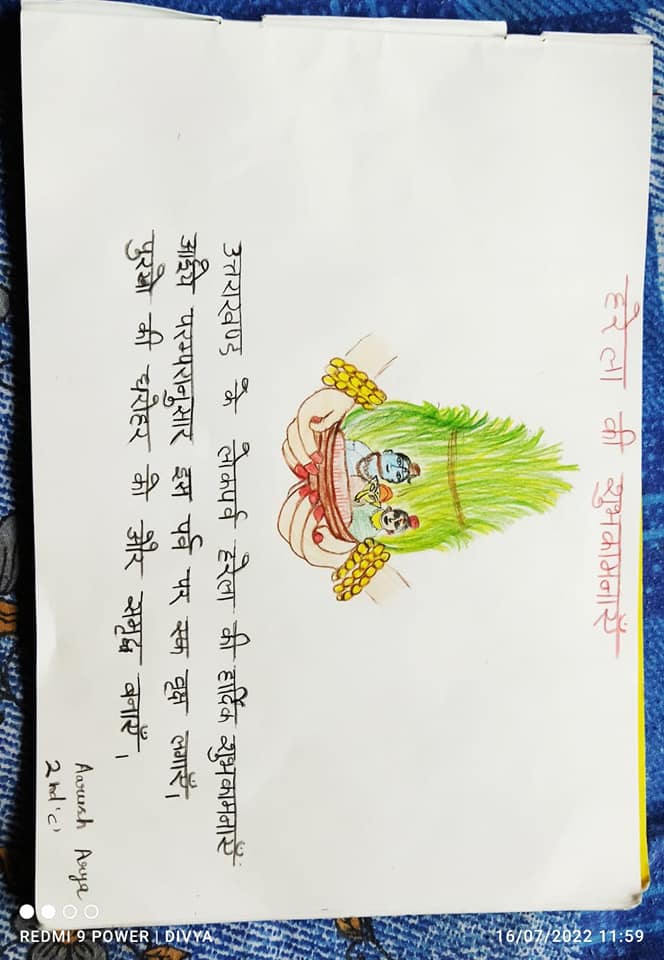 हरेला की शुभकामनाएँ
उत्तराखण्ड के लोकपर्व हरेला की हार्दिक शुभकामनाएँ
आईये परम्परानुसार इस पर्व पर एक वृक्ष लगाएँ।
पुरखो की धरोहर को और समृद्ध बनाएँ।
Aarush Arya
2nd 'c'
REDMI 9 POWER | DIVYA
16/07/2022 11:59